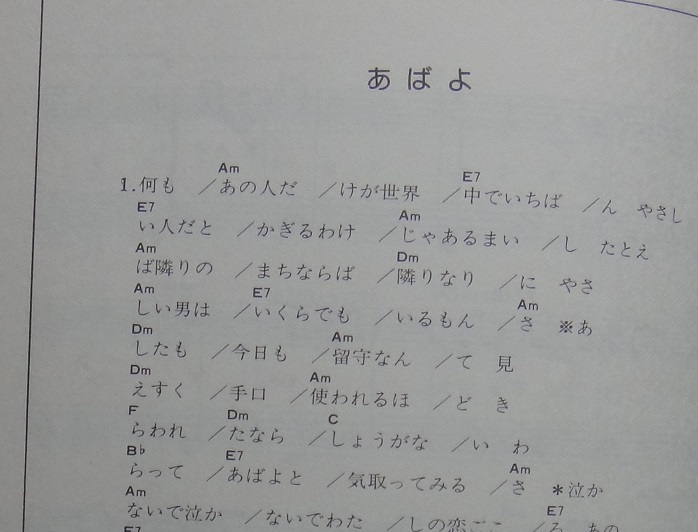 あばよ
Am E7
1.何も ／あの人だ ／けが世界 ／中でいちば ／ん やさし
E7 Am
い人だと ／かぎるわけ ／じゃあるまい ／し たとえ
Am Dm
ば隣りの ／まちならば ／隣りなり ／に やさ
Am E7 Am
しい男は ／いくらでも ／いるもん ／さ ※あ
Dm Am
したも ／今日も ／留守なん ／て 見
Dm Am
えすく ／手口 ／使われるほ ／ど き
F Dm C
らわれ ／たなら ／しょうがな ／い わ
B♭ E7 Am
らって ／あばよと ／気取ってみる ／さ ＊泣か
Am E7
ないで泣か ／ないでわた ／しの恋ごこ ／ろ あの
E7